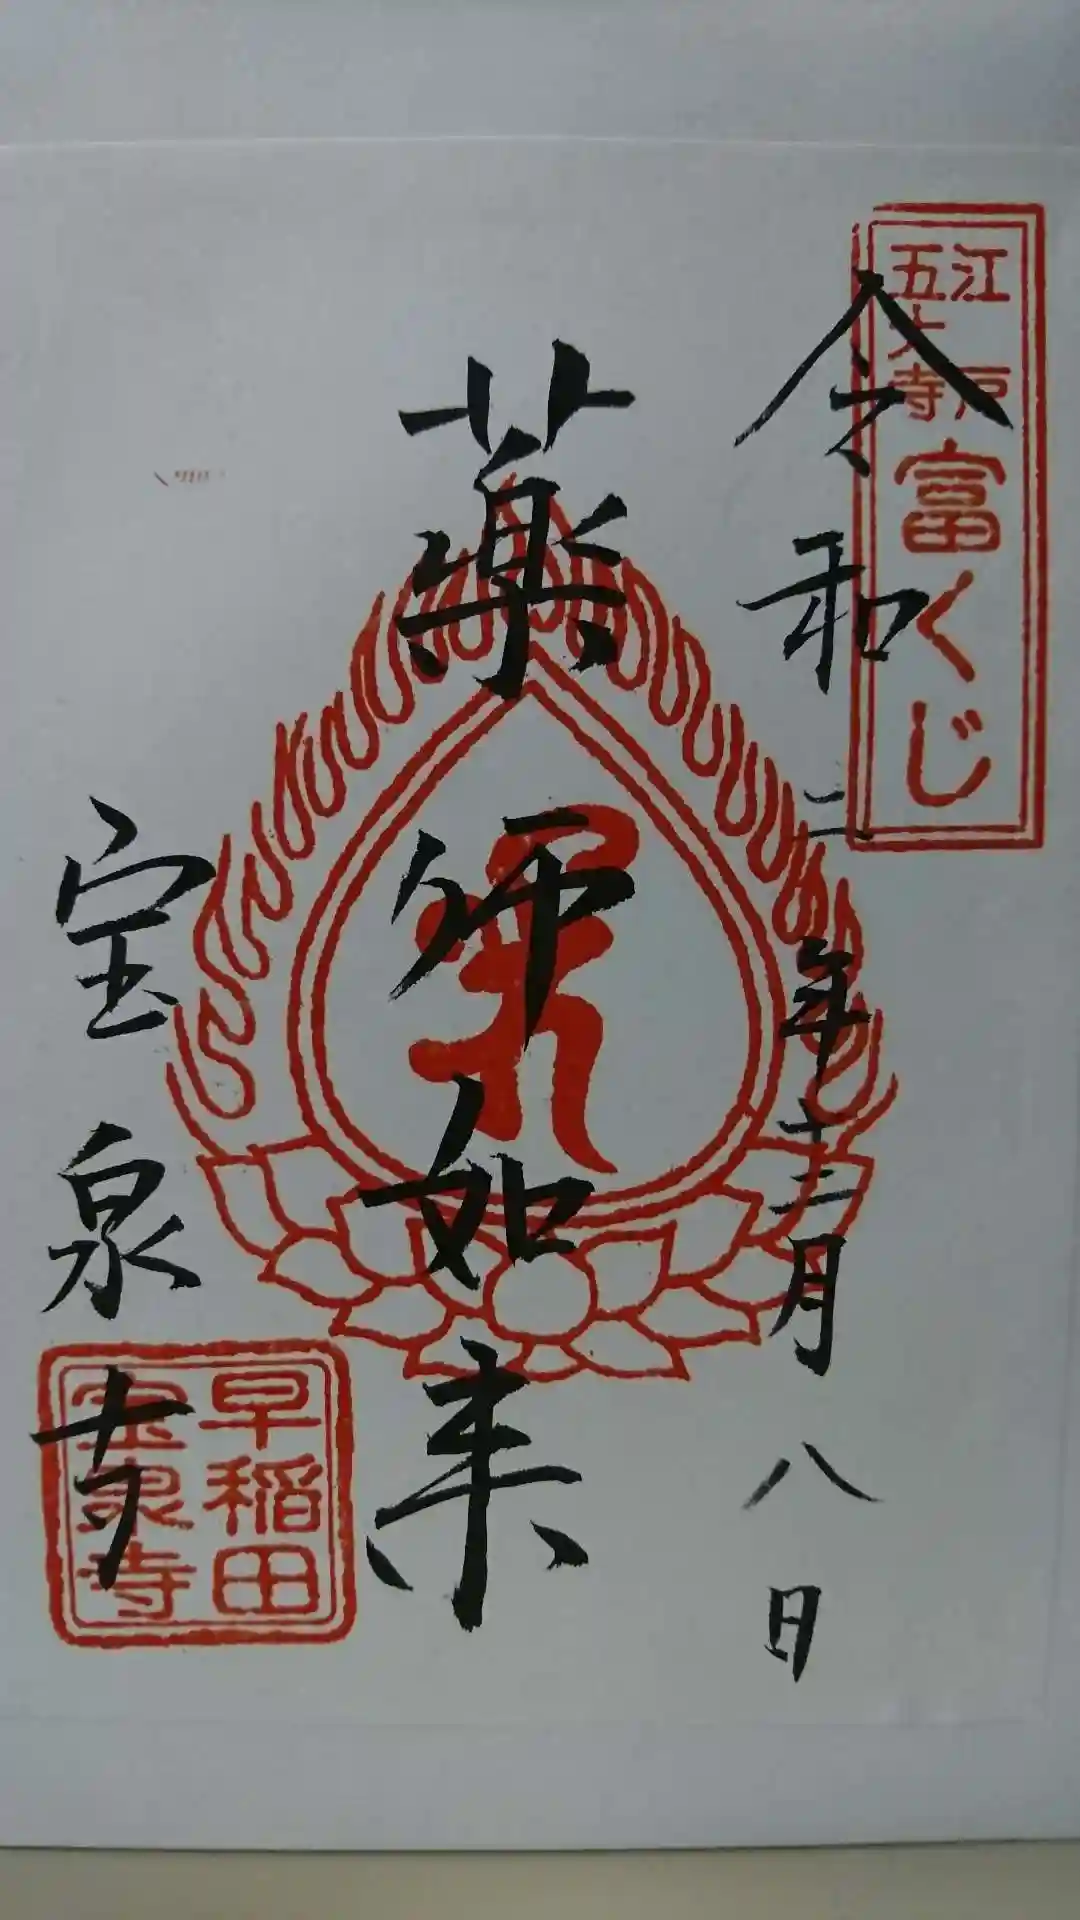 江戸
五大寺
富くじ
令和二年十二月八日
薬師如来
宝泉寺
早稲田
宝泉寺